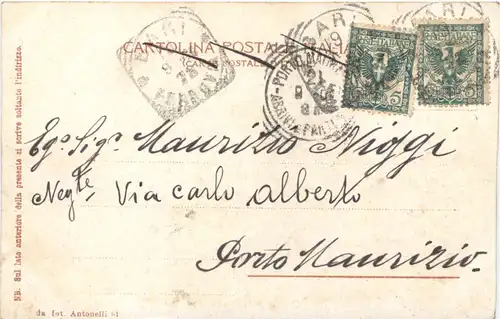 CARTOLINA POSTALE ITALIANA
(CARTE POSTALE
BARI
BARI
BARI
POSTE ITALIANE
POSTE ITALIANE
Eg. Sig. Maurizio Niggi
Negte. Via Carlo Alberto
Porto Maurizio.
NB. Sul lato anteriore della presente si scrive soltanto l'indirizzo.
da fot. Antonelli